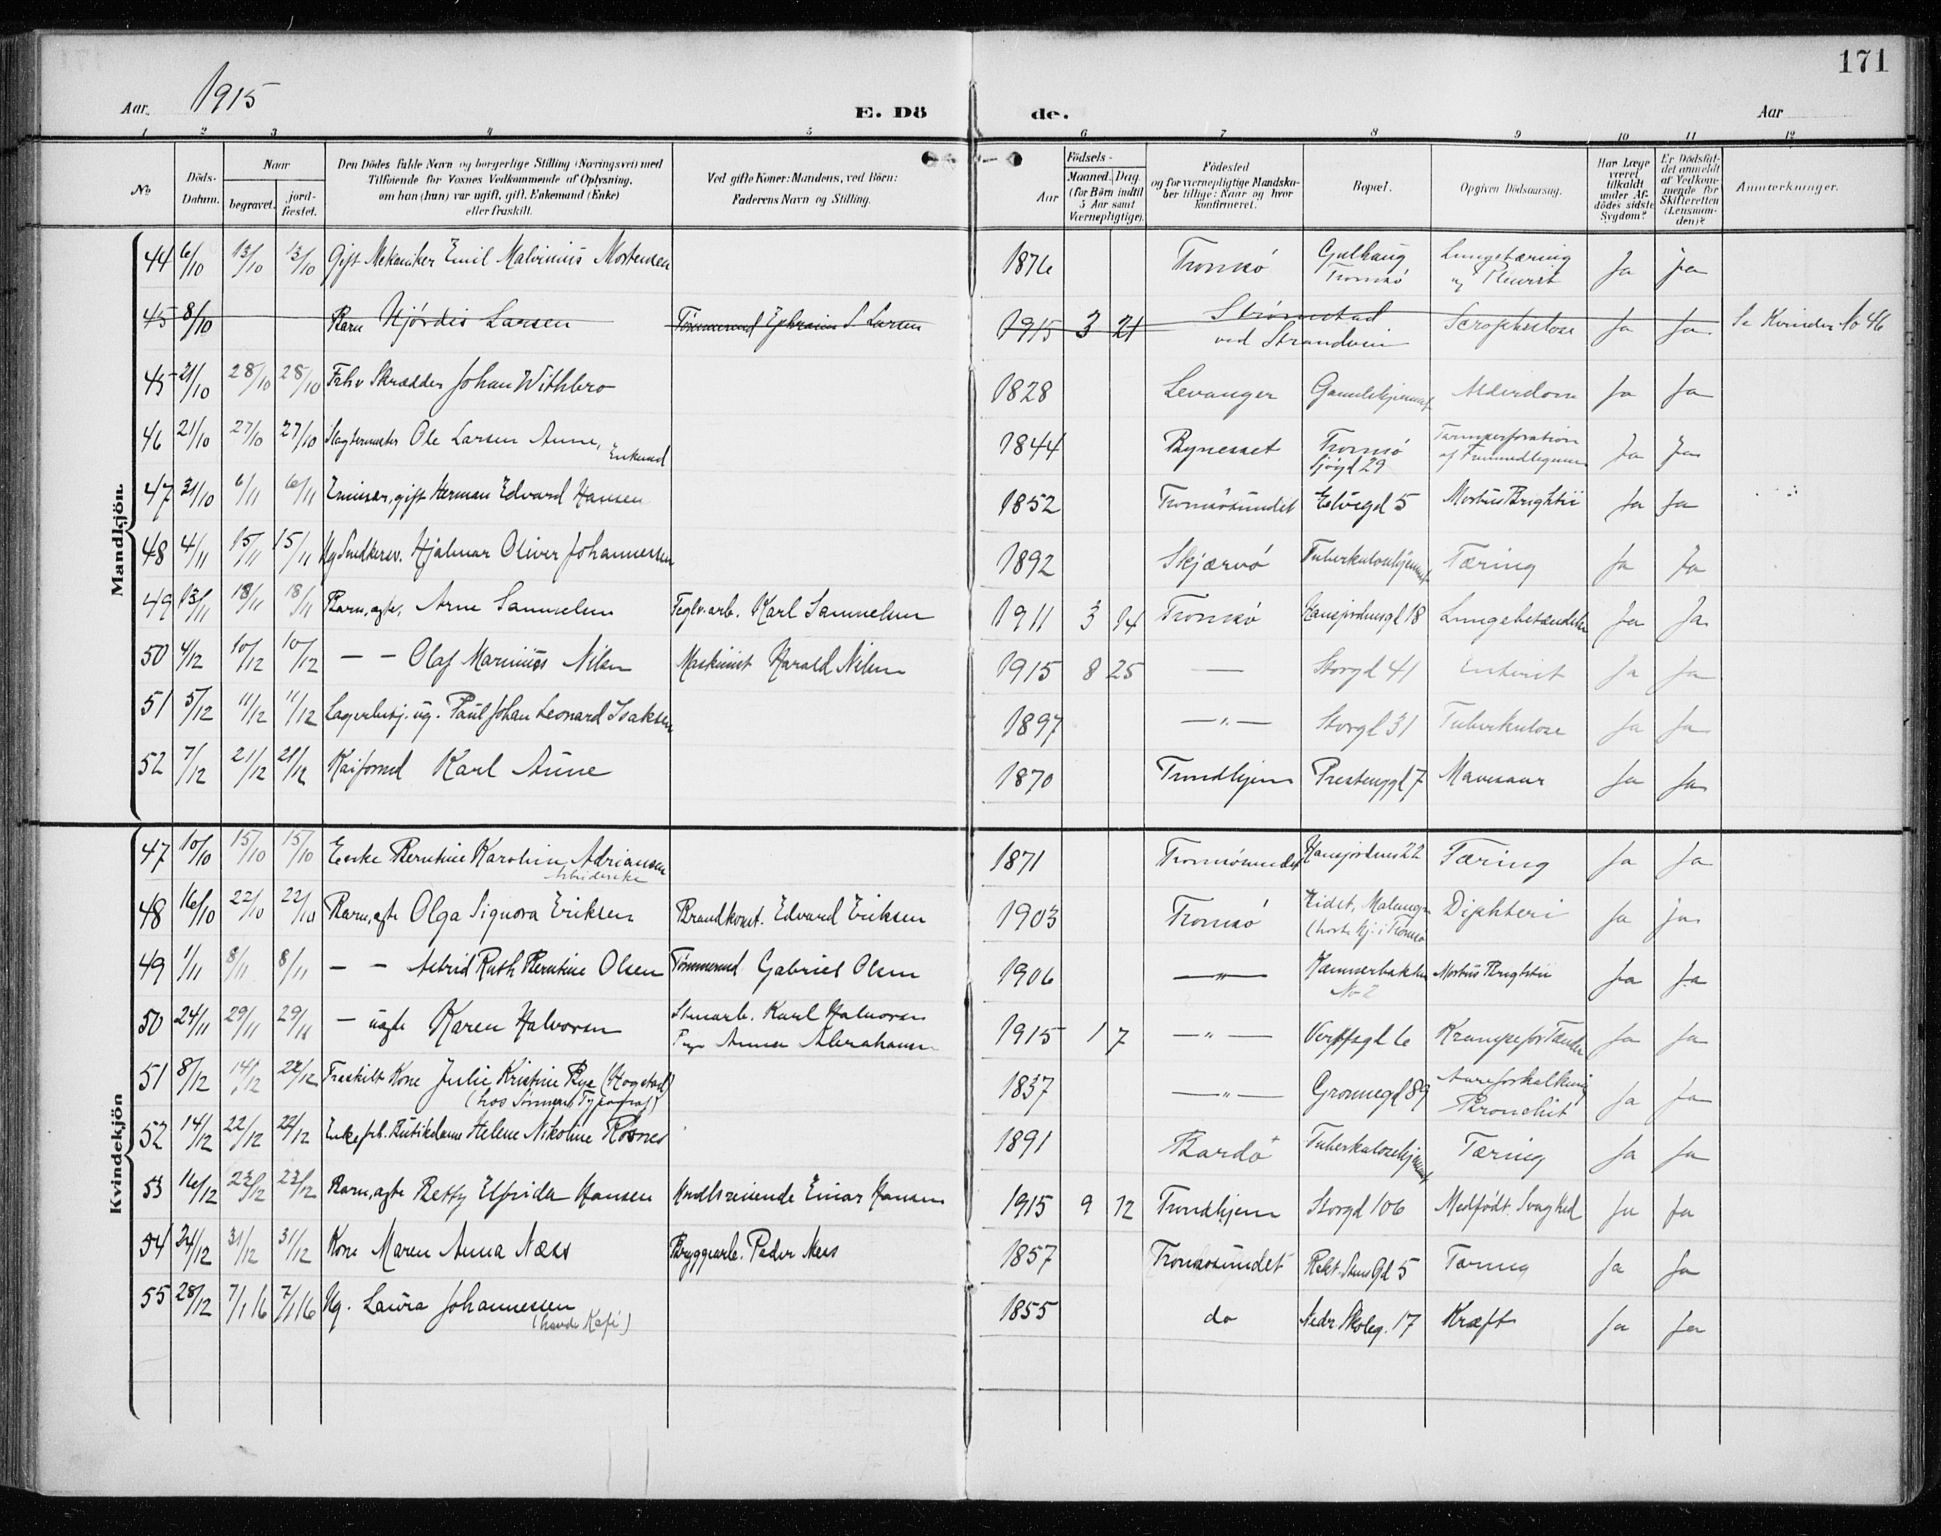 171
Aar 1915 E. Döde. Aar
1 2 3 4 5 6 7 8 9 10 11 12
No
Döds-Datum.
Naar
begravet.
jordfæstet.
Den Dödes fulde Navn og borgerlige Stilling (Næringsvei) med
Tilföiende for Voxnes Vedkommende af Oplysning,
om han (hun) var ugift, gift, Enkemand (Enke)
eller fraskilt.
Ved gifte Koner: Mandens, ved Børn:
Faderens Navn og Stilling.
Födsels-
Aar
Maaned. Dag
(for Börn indtil
5 Aar samt
Værnepligtige).
Födested
og for værnepligtige Mandskaber tillige: Naar og hvor
konfirmeret.
Bopæl.
Opgiven Dödsaarsag.
Har Læge
været
tilkaldt
under Afdödes sidste
Sygdom?
Er Dödsfaldet anmeldt
af Vedkommende for
Skifteretten
(Lensmanden)?
Anmærkninger.
Mandkjön
44 6/10 13/10 13/10 Gift Mekaniker Emil Malvinius Mortensen 1876 Tromsö Gulhaug Tromsö Lungetæring og Pleurit Ja Ja
45 8/10 Barn Hjørdis Larsen Tømmermd Ephraim S Larsen 1915 3 21 Strømstad ved Strandvein Scrophulose Ja Ja Se Kvinder No 46
45 21/10 28/10 28/10 Fhv Skrædder Johan Withbro 1828 Levanger Gamlehjemmet Alderdom Ja Ja
46 21/10 27/10 27/10 Slagtermester Ole Larsen Aune, Enkemd 1844 Bynesset Tromsö Sjøgd 29 Tarmperforation Ja Ja
47 31/10 6/11 6/11 Emissær, gift Herman Edvard Hansen 1852 Tromsösundet Elvegd 5 Morbus Brightii Ja Ja
48 4/11 15/11 15/11 Ug Snedkersv. Hjalmar Oliver Johannessen 1892 Skjærvö Tuberkulosehjemmet Tæring Ja Ja
49 13/11 18/11 18/11 Barn, ægte, Arne Samuelsen Teglv.arb. Karl Samuelsen 1911 3 14 Tromsö Hansjordnesgd 18 Lungebetændelse Ja Ja
50 4/12 10/12 10/12 — — Olaf Marinius Nilsen Maskinist Harald Nilsen 1915 8 25 — Storgd 41 Enterit Ja Ja
51 5/12 11/12 11/12 Lagerbetj. ug. Paul Johan Leonard Isaksen 1897 —"— Storgd 31 Tuberkulose Ja Ja
52 7/12 21/12 21/12 Kaiformd Karl Aune 1870 Trondhjem Prestenggd 7 Mavesaar Ja Ja
Kvindekjön
47 10/10 15/10 15/10 Enke Berntine Karolin Adriansen 1871 Tromsösundet Hansjordnes 22 Tæring Ja Ja
48 16/10 22/10 22/10 Barn, ægte Olga Signora Eriksen Brandkonst. Edvard Eriksen 1903 Tromsö Malangen Diphteri Ja Ja
49 1/11 8/11 8/11 — — Astrid Ruth Berntine Olsen Tømmermd Gabriel Olsen 1906 —"— Kæmnerbakken No 2 Morbus Brightii Ja Ja
50 24/11 29/11 29/11 — uægte Karen Halvorsen Stenarb. Karl Halvorsen Anna Abrahamsen 1915 1 7 —"— Verftsgd 6 Krampe for Tænder Ja Ja
51 8/12 14/12 22/12 Fraskilt Kone Julie Kristine Bye (Hogstad) (hos Sønnen Typograf) 1837 —"— Grønnegd 89 Aareforkalkning Bronchit Ja Ja
52 14/12 22/12 22/12 Enke frh. Butikdame Helene Nikoline Rosnes 1891 Bardö Tuberkulosehjemmet Tæring Ja Ja
53 16/12 23/12 23/12 Barn, ægte Betty Elfrida Hansen Handelsreisende Einar Hansen 1915 9 12 Trondhjem Storgd 106 Medfödt Svaghed Ja Ja
54 24/12 31/12 31/12 Kone Maren Anna Næss Bryggearb. Peder Ness 1857 Tromsösundet Gd 5 Tæring Ja Ja
55 28/12 7/1 16 7/1 16 Ug. Laura Johannessen (havde Kafé) 1855 do Nedr. Skoleg. 17 Kræft Ja Ja